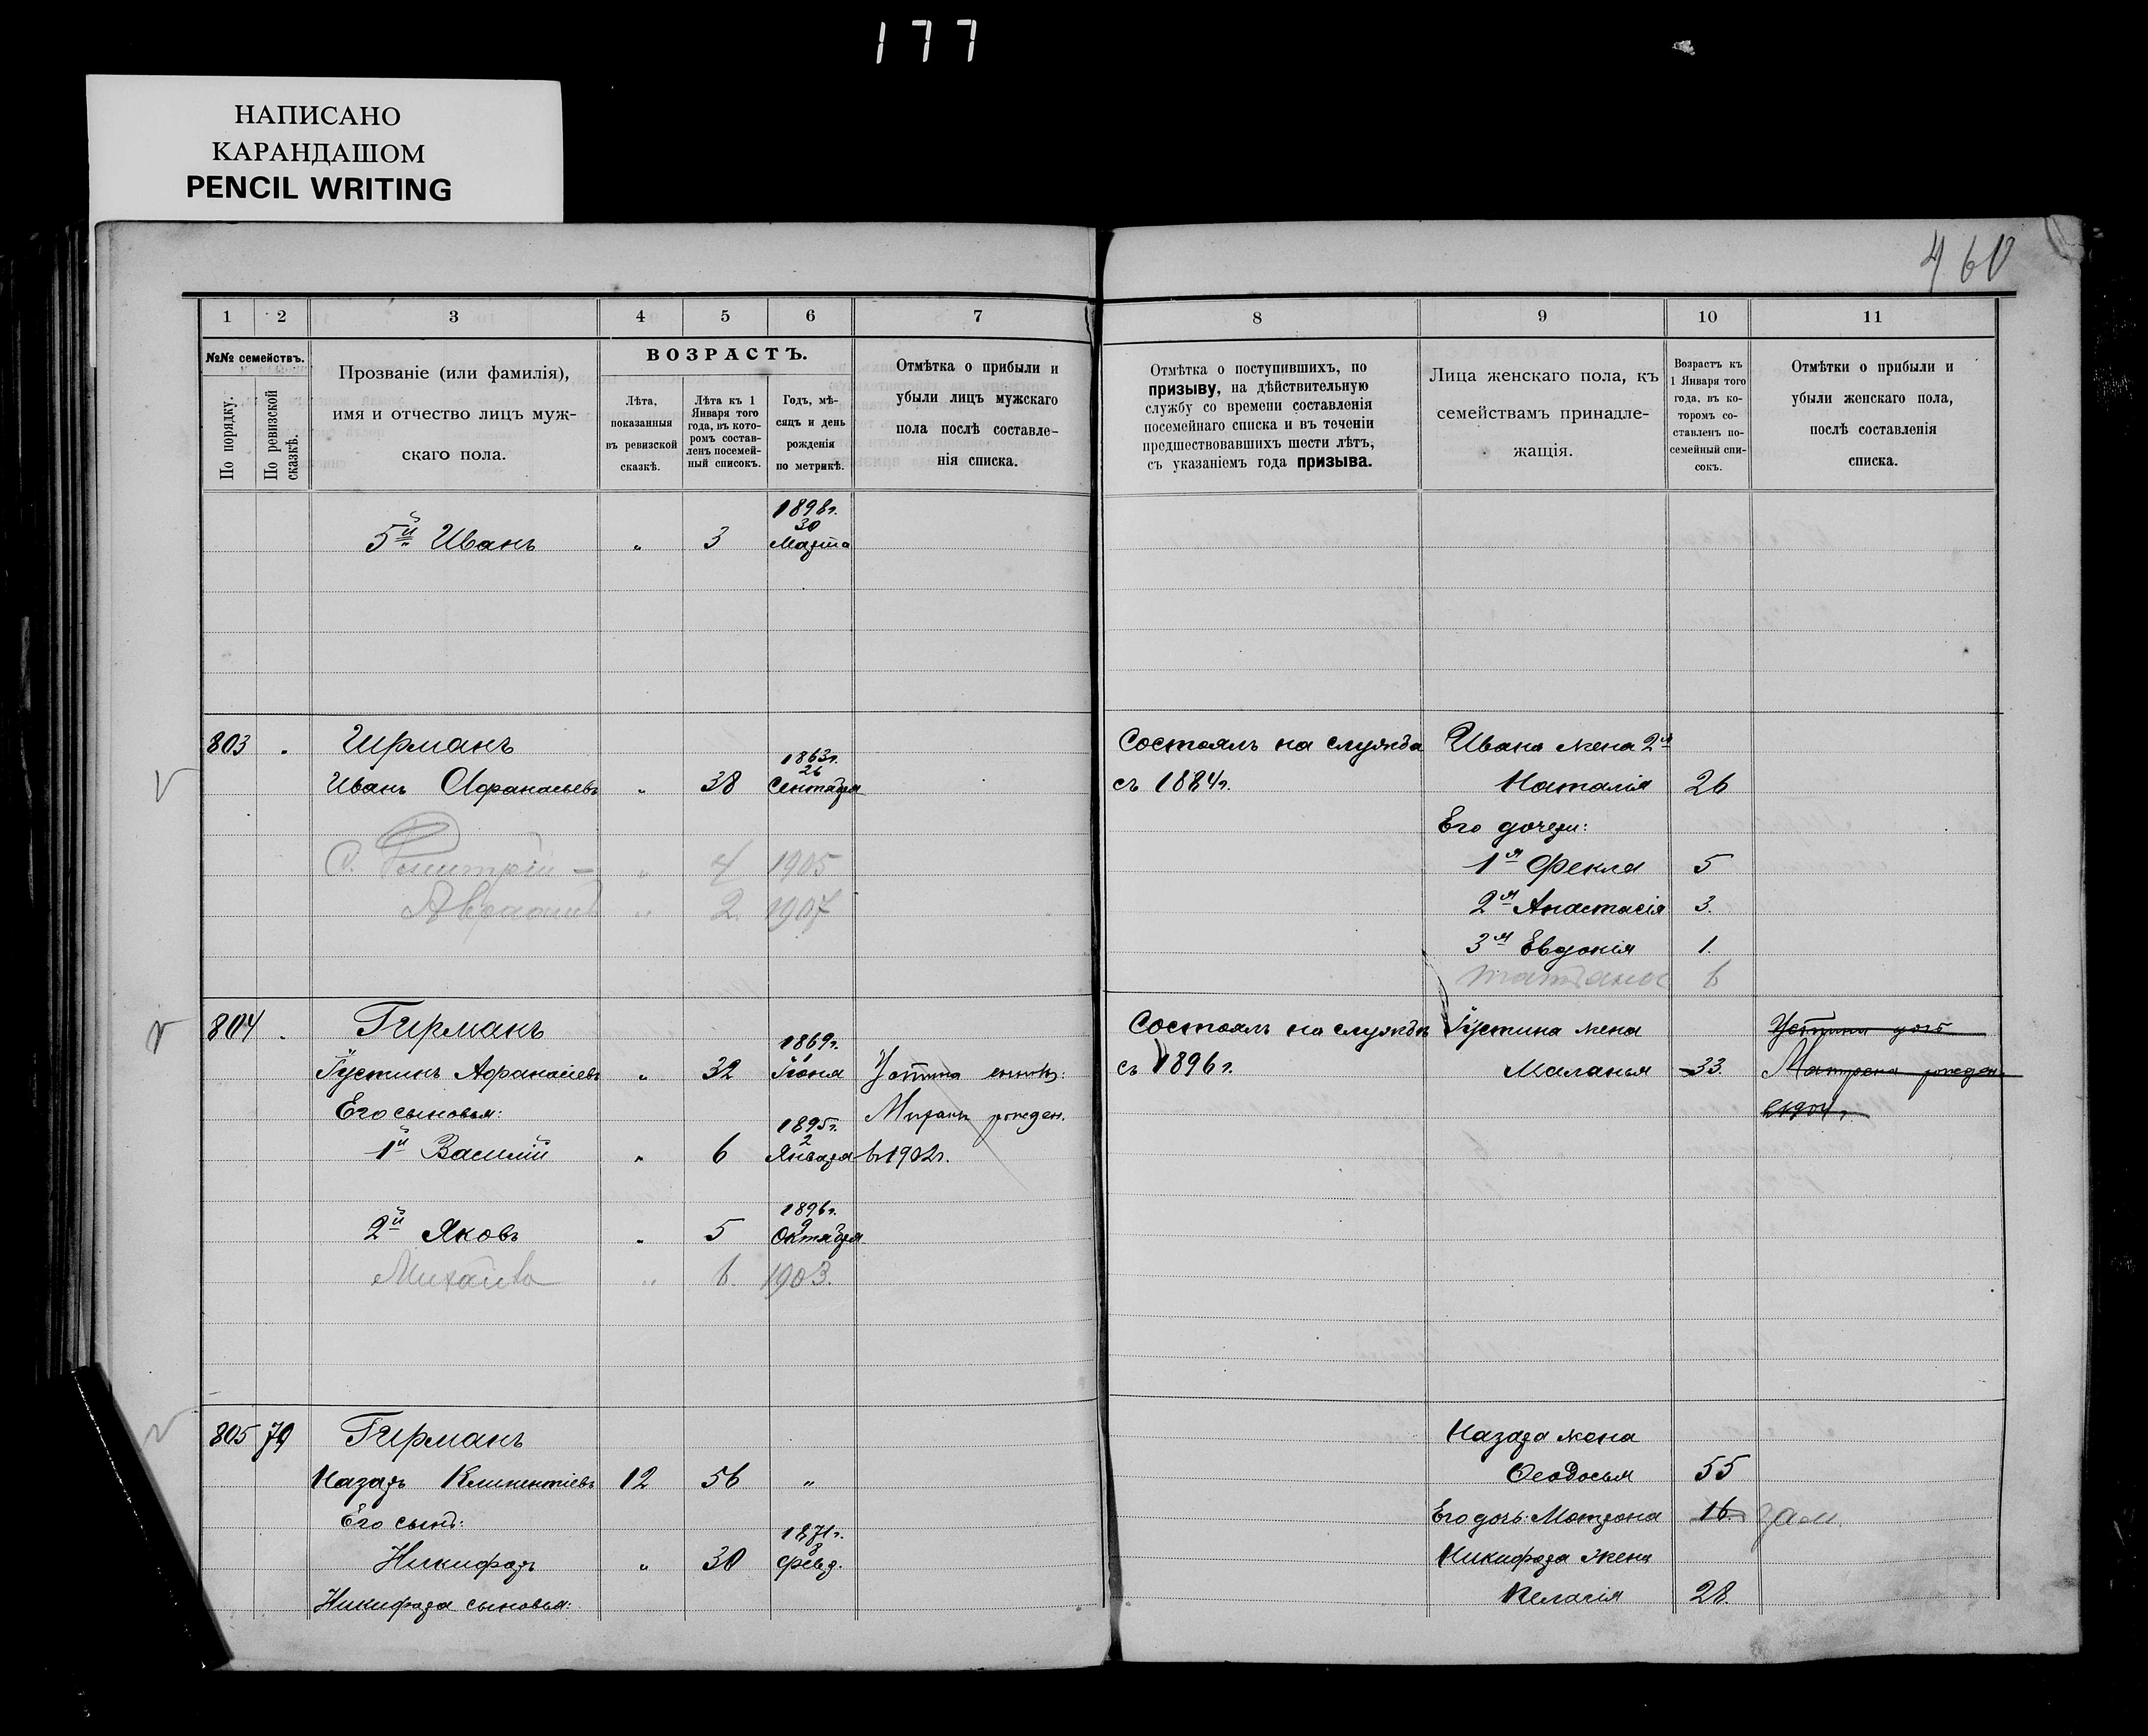 177
НАПИСАНО
КАРАНДАШОМ
PENCIL WRITING
460
1 2 3 4 5 6 7 8 9 10 11
№№ семействъ.
По порядку.
По ревизской сказкѣ.
Прозваніе (или фамилія),
имя и отчество лицъ муж-
скаго пола.
ВОЗРАСТЪ.
Лѣта,
показанныя
въ ревизской
сказкѣ.
Лѣта къ 1
Января того
года, въ кото-
ромъ состав-
ленъ посемей-
ный списокъ.
Годъ, мѣ-
сяцъ и день
рожденія
по метрикѣ.
Отмѣтка о прибыли и
убыли лицъ мужскаго
пола послѣ составле-
нія списка.
Отмѣтка о поступившихъ, по
призыву, на дѣйствительную
службу со времени составленія
посемейнаго списка и въ теченіи
предшествовавшихъ шести лѣтъ,
съ указаніемъ года призыва.
Лица женскаго пола, къ
семействамъ принадле-
жащія.
Возрастъ къ
1 Января того
года, въ ко-
торомъ со-
ставленъ по-
семейный спи-
сокъ.
Отмѣтки о прибыли и
убыли женскаго пола,
послѣ составленія
списка.
1898г.
30
5й Иванъ " 3 Марта
803 Гирманъ Состоялъ на службѣ Ивана жена 2я
1863г.
26
Иванъ Афанасьевъ " 38 Сентября съ 1884г. Наталія 26
Его дочери:
Дмитрій " 4 1905 1я Фекла 5
" 2. 1907 2я Анастасія 3.
3я Евдокія 1.
Татьяна 6
804 Гирманъ Состоялъ на службѣ Іустина жена Устина дочь
1869г.
1
Іустинъ Афанасіевъ " 32 Іюня Устина сынъ: съ 1896г. Маланья 33. Матрена рожден.
Его сыновья: Миронъ рожден. 1904г.
1895г.
2
1й Василій " 6 Января в 1902г.
1896г.
9
2й Яковъ " 5 Октября
Михаилъ " 6. 1903.
805 79 Гирманъ Назара жена
Назаръ Климентіевъ 12 56 " Феодосья 55
Его сынъ: Его дочь: Матрона 16. зам.
1871г.
8
Никифоръ " 30 Февр. Никифора жена
Никифора сыновья: Пелагія 28.